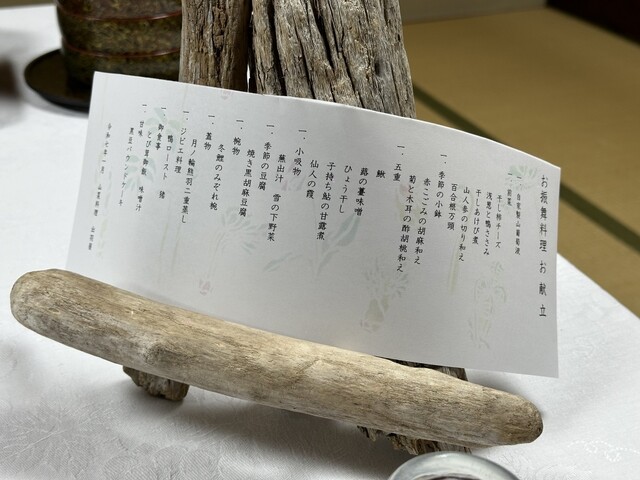 お振舞料理お献立
一、前菜
自家製山葡萄液
干し柿チーズ
浅葱と鴨ささみ
干しあけび煮
山人参の切り和え
百合根万頭
一、季節の小鉢
赤こごみの胡麻和え
菊と木耳の酢胡桃和え
一、五重
鰍
蕗の薹味噌
ひょう干し
子持ち鮎の甘露煮
仙人の霞
一、小吸物
蕪出汁 雪の下野菜
一、季節の豆腐
焼き黒胡麻豆腐
一、椀物
冬鯉のみぞれ椀
一、蓋物
月ノ輪熊羽二重蒸し
一、ジビエ料理
鴨ロースト 猪
一、御食事
とび茸御飯 味噌汁
一、甘味
黒豆パウンドケーキ
令和七年一月 山菜料理 出羽屋